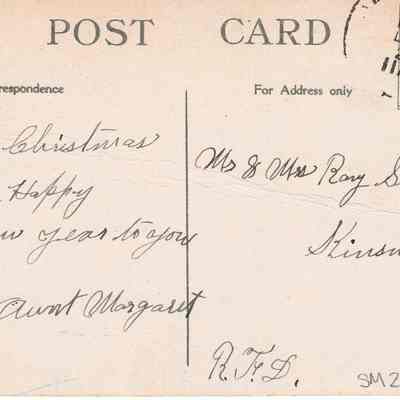 POST CARD
respondence
For Address only
Christmas
Happy
w year to you
Aunt Margaret
Mr & Mrs Ray S
Kinsm
R.F.D.
SM2